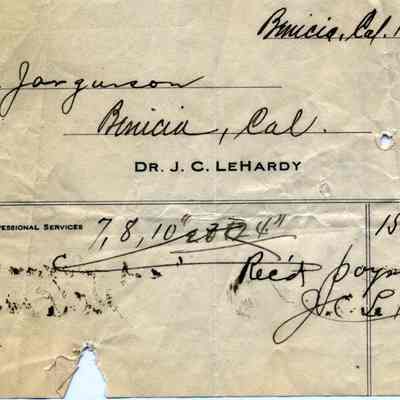 Benicia, Cal. 1
Jorgunson
Benicia, Cal.
DR. J. C. LEHARDY
FESSIONAL SERVICES 7, 8, 10" 4" 15
Rec'd paym
J. C. Le